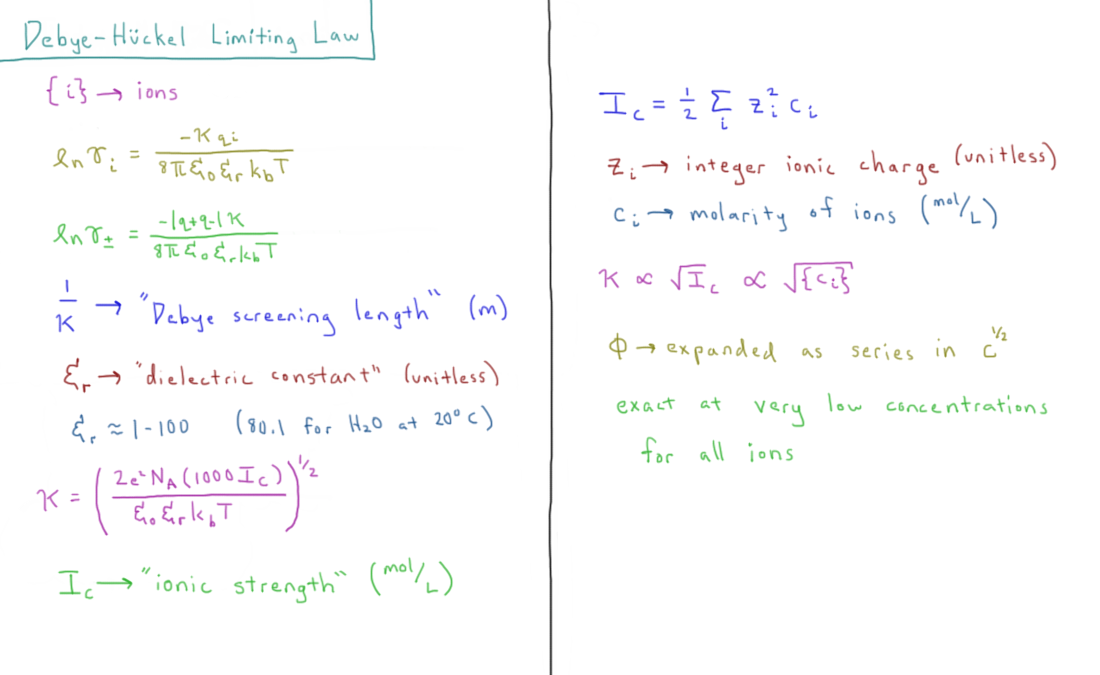 Debye-Hückel Limiting Law
{i} → ions
ln γᵢ = -κqᵢ / 8πε₀εᵣk_bT
ln γ± = -|q₊q₋|κ / 8πε₀εᵣk_bT
1/κ → "Debye screening length" (m)
εᵣ → "dielectric constant" (unitless)
εᵣ ≈ 1-100 (80.1 for H₂O at 20°C)
κ = (2e²N_A(1000I_c) / ε₀εᵣk_bT)^1/2
I_c → "ionic strength" (mol/L)
I_c = 1/2 Σᵢ zᵢ² cᵢ
zᵢ → integer ionic charge (unitless)
cᵢ → molarity of ions (mol/L)
κ ∝ √I_c ∝ √{cᵢ}
ϕ → expanded as series in c^1/2
exact at very low concentrations
for all ions